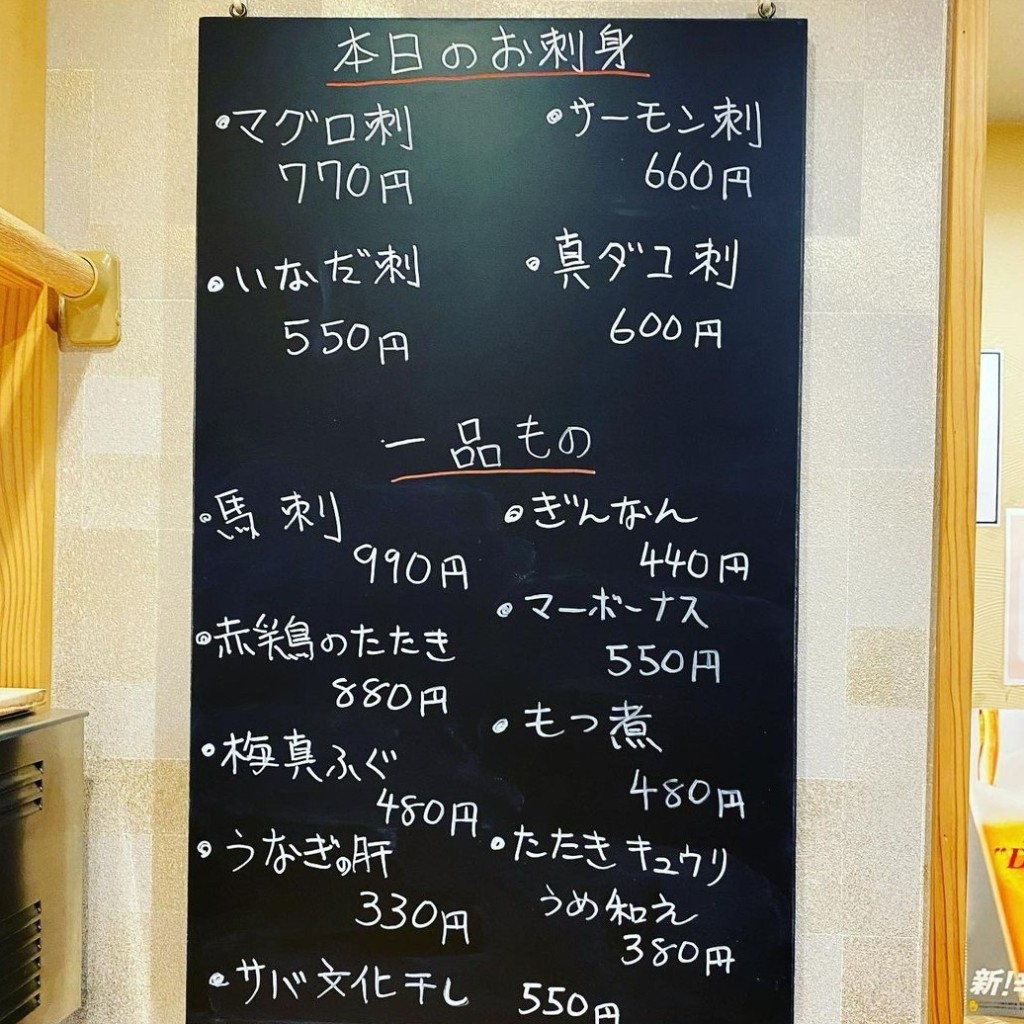 本日のお刺身
・マグロ刺
770円
・サーモン刺
660円
・いなだ刺
550円
・真ダコ刺
600円
一品もの
・馬刺
990円
・ぎんなん
440円
・赤鶏のたたき
880円
・マーボーナス
550円
・梅真ふぐ
480円
・もつ煮
480円
・うなぎの肝
330円
・たたきキュウリ
うめ和え
380円
・サバ文化干し 550円
"D
新!